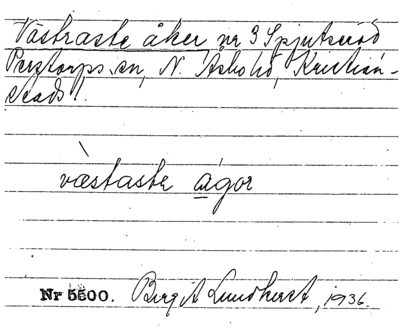 Västraste åker nr 3 Spjutseröd
Perstorps sn, N. Åsbo hd, Kristian-
stads l.
väs̀taste ágor
Nr 5500. Birgit Lundkvist, 1936.